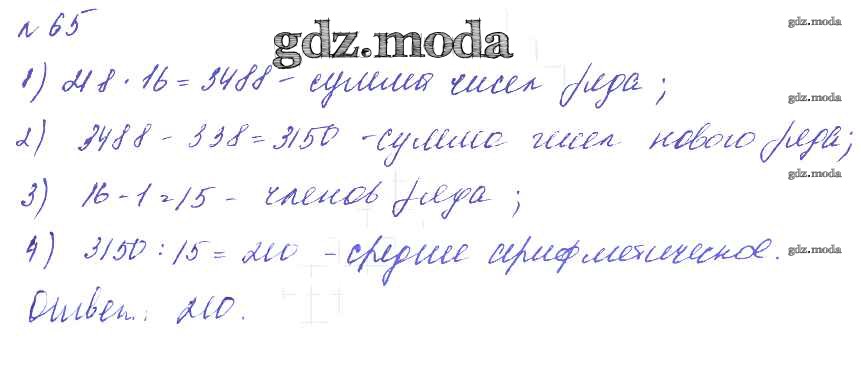 № 65
gdz.moda
gdz.moda
1) 218 · 16 = 3488 - сумма чисел ряда;
gdz.moda
2) 3488 - 338 = 3150 - сумма чисел нового ряда;
gdz.moda
3) 16 - 1 = 15 - членов ряда;
4) 3150 : 15 = 210 - среднее арифметическое.
gdz.moda
Ответ: 210.